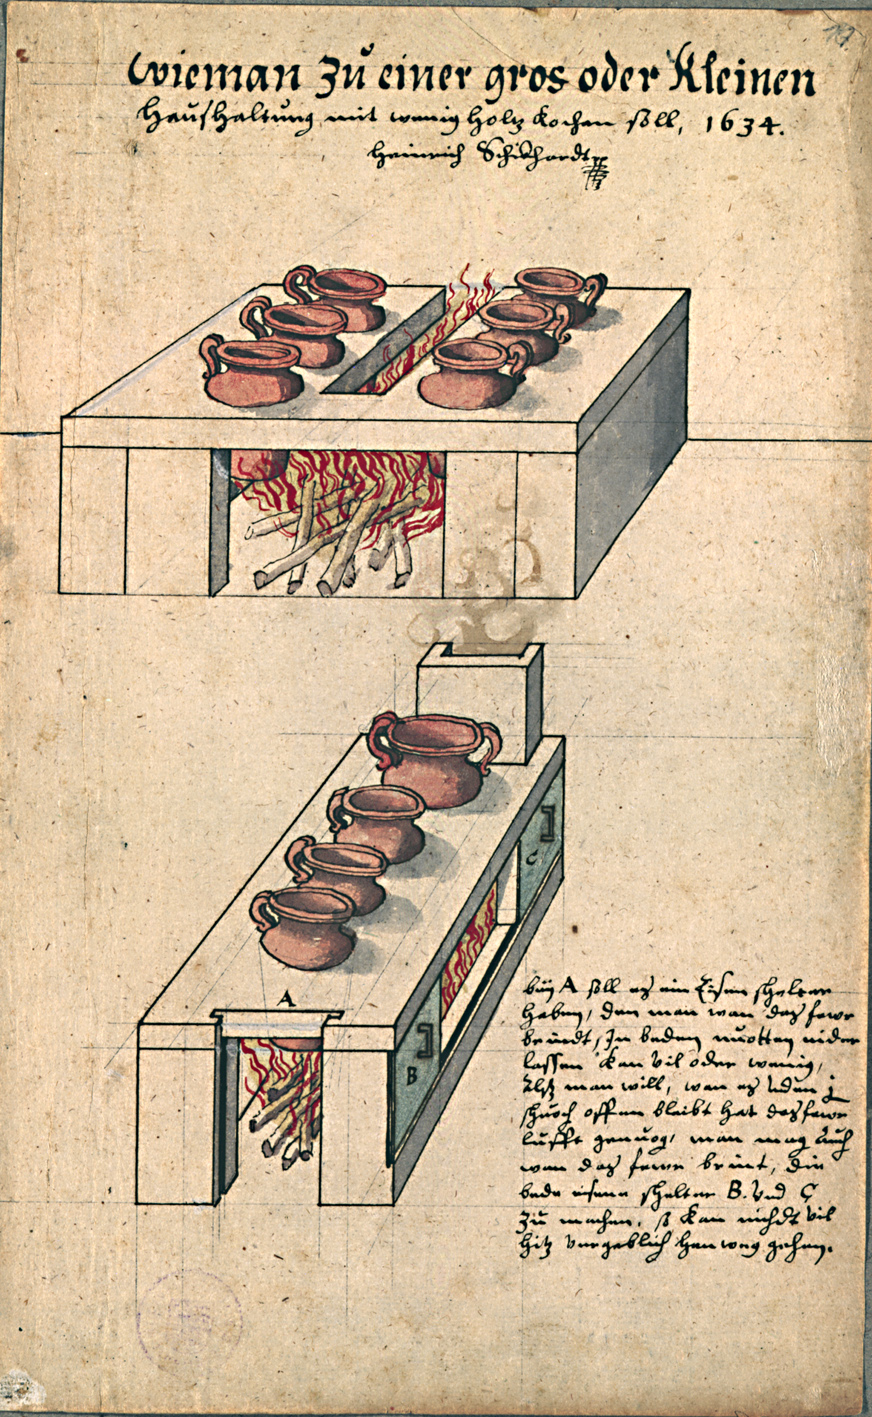 Wieman Zu einer gros oder Kleinen
Haushaltung mit wenig holtz kochen soll, 1634.
Heinrich Schickhardt
A
C
B
beÿ A soll es ein Eisen schelter
haben, den man wan das fewr
brindt, In beden nuotten nider
lassen kan vil oder wenig,
Alß man will, wan es unden j
schuoch offen bleibt hat das fewr
luffts genuog, man mag auch
wan das fewr brint, die
bede eisene schelter B. und C
zu machen, so kan nichdt vil
hitz vergeblich hinweg gehen.